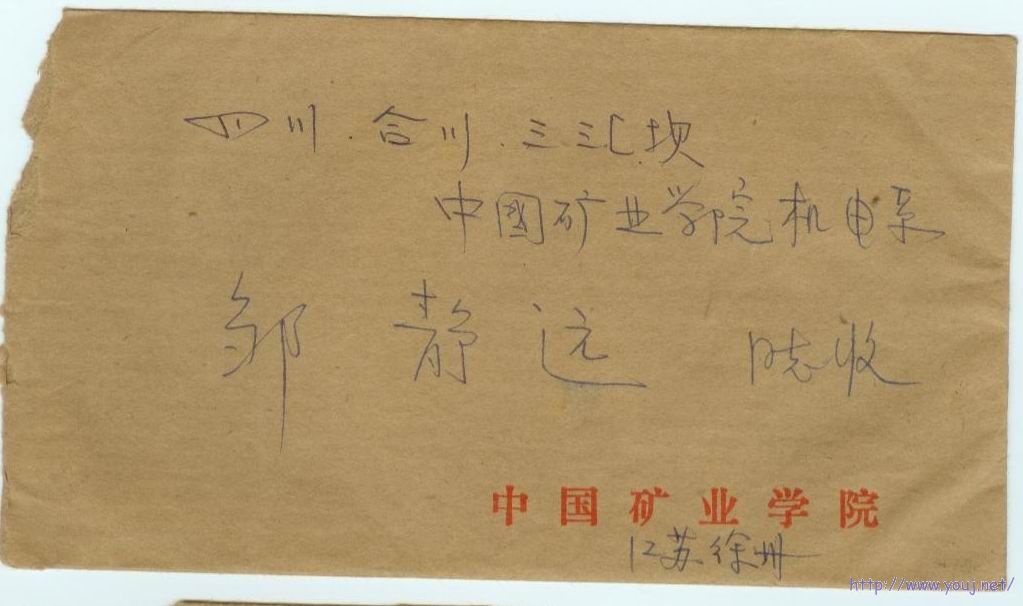 四川.合川.三汇坝
中國矿业学院机电系
邹静远 同志收
中国矿业学院
江苏徐州
http://www.youj.net/